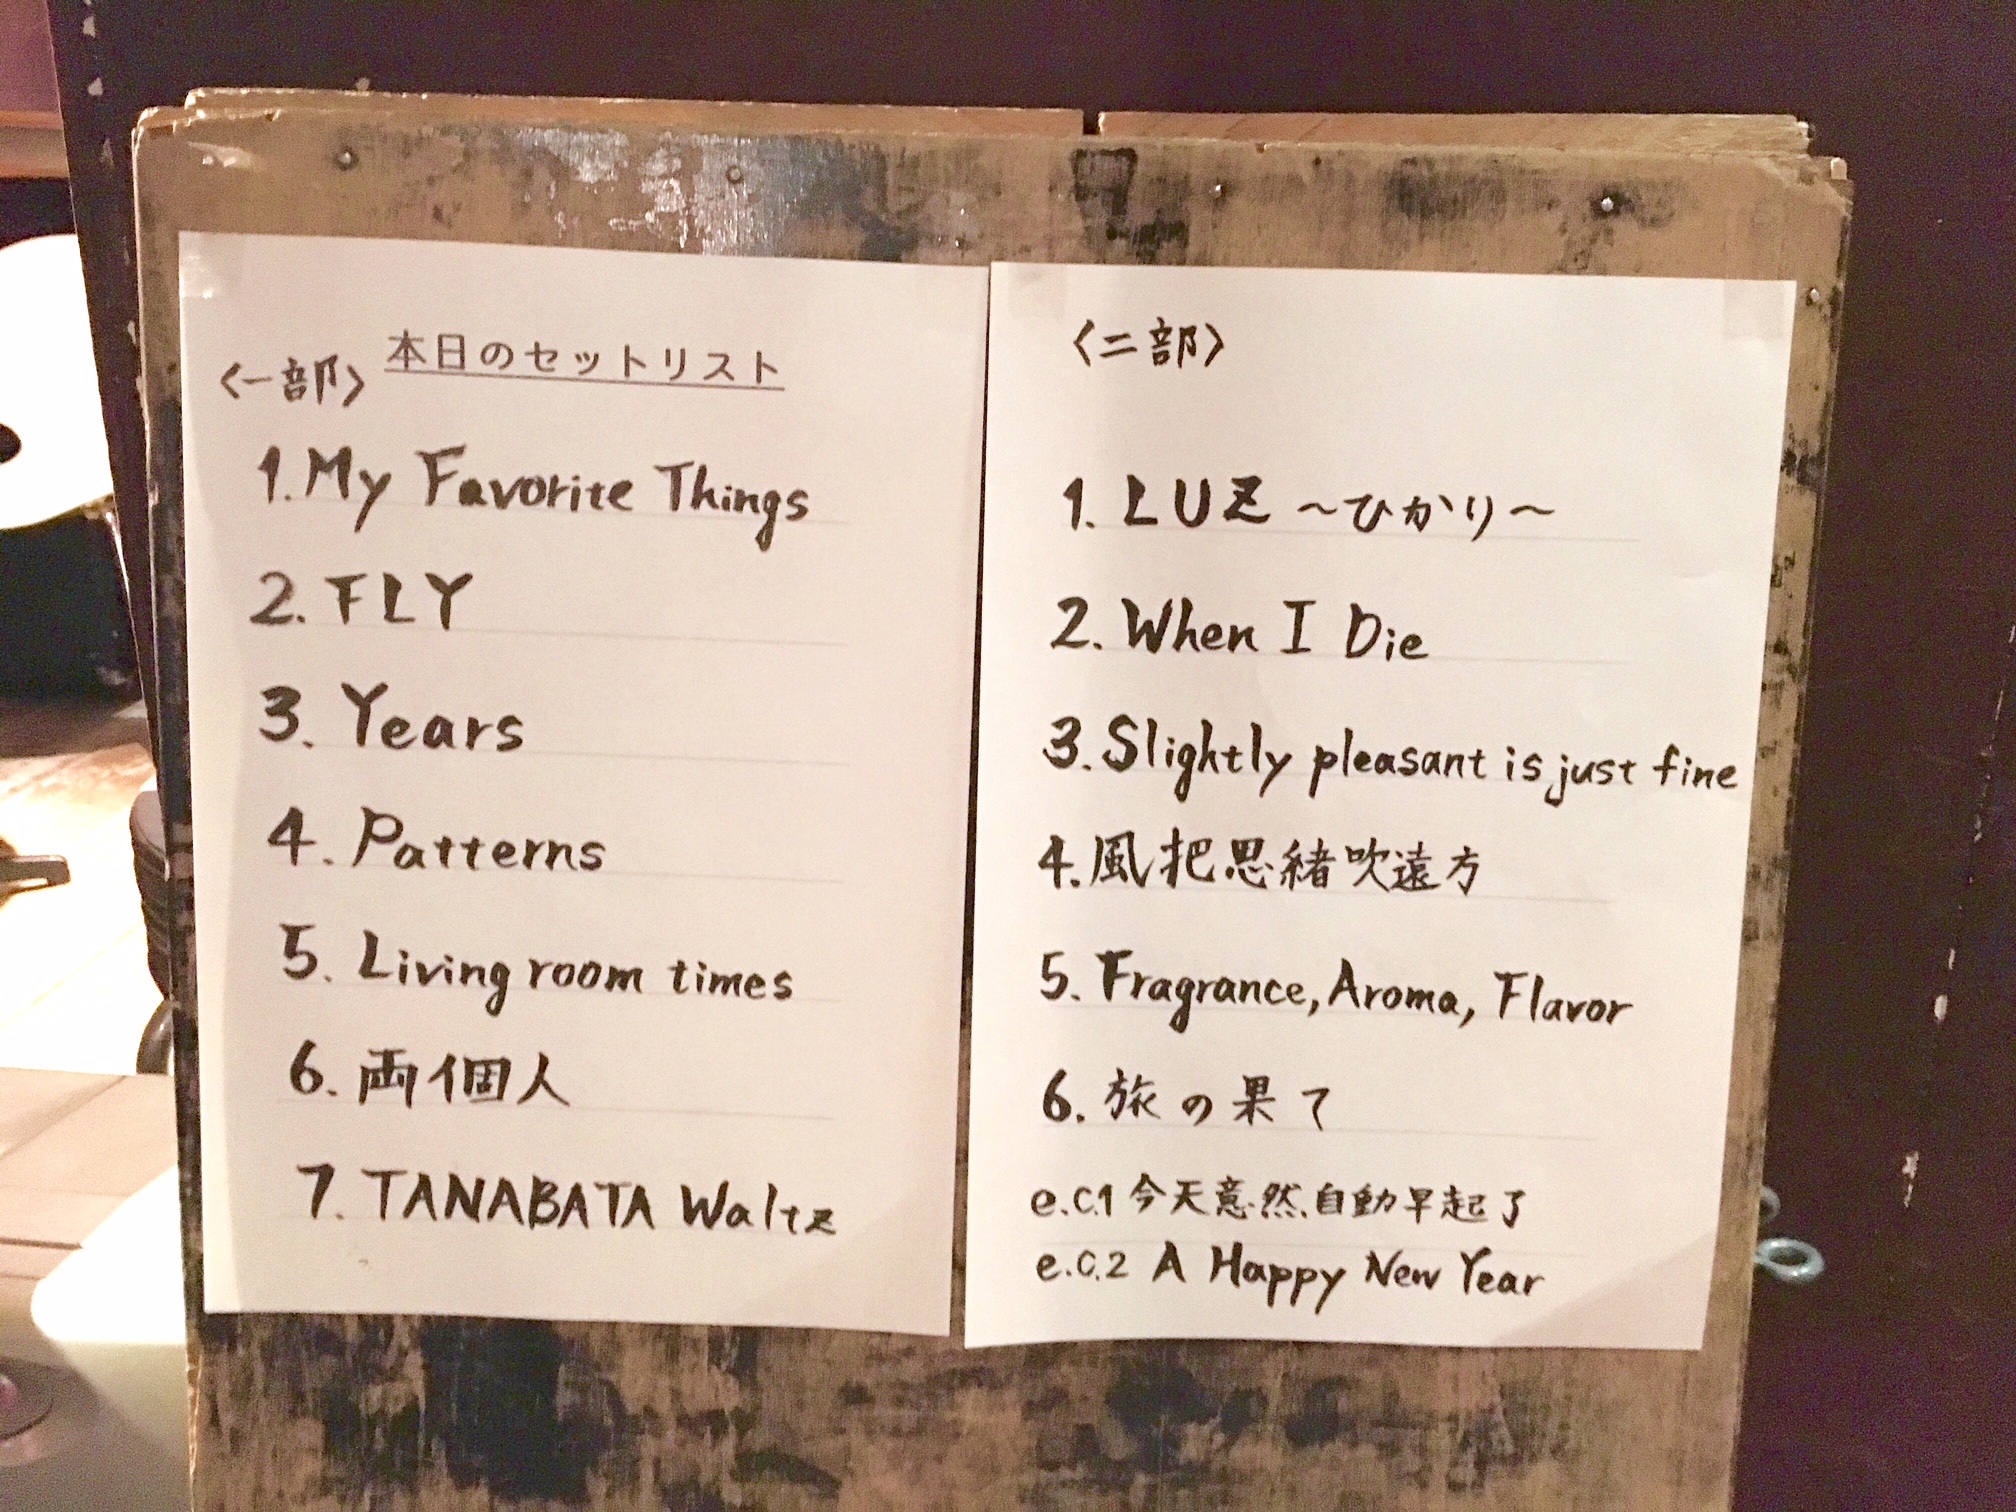 本日のセットリスト
〈一部〉
1. My Favorite Things
2. FLY
3. Years
4. Patterns
5. Living room times
6. 両個人
7. TANABATA Waltz
〈二部〉
1. LUZ ～ひかり～
2. When I Die
3. Slightly pleasant is just fine
4. 風把思緒吹遠方
5. Fragrance, Aroma, Flavor
6. 旅の果て
e.c.1 今天意然自動早起了
e.c.2 A Happy New Year